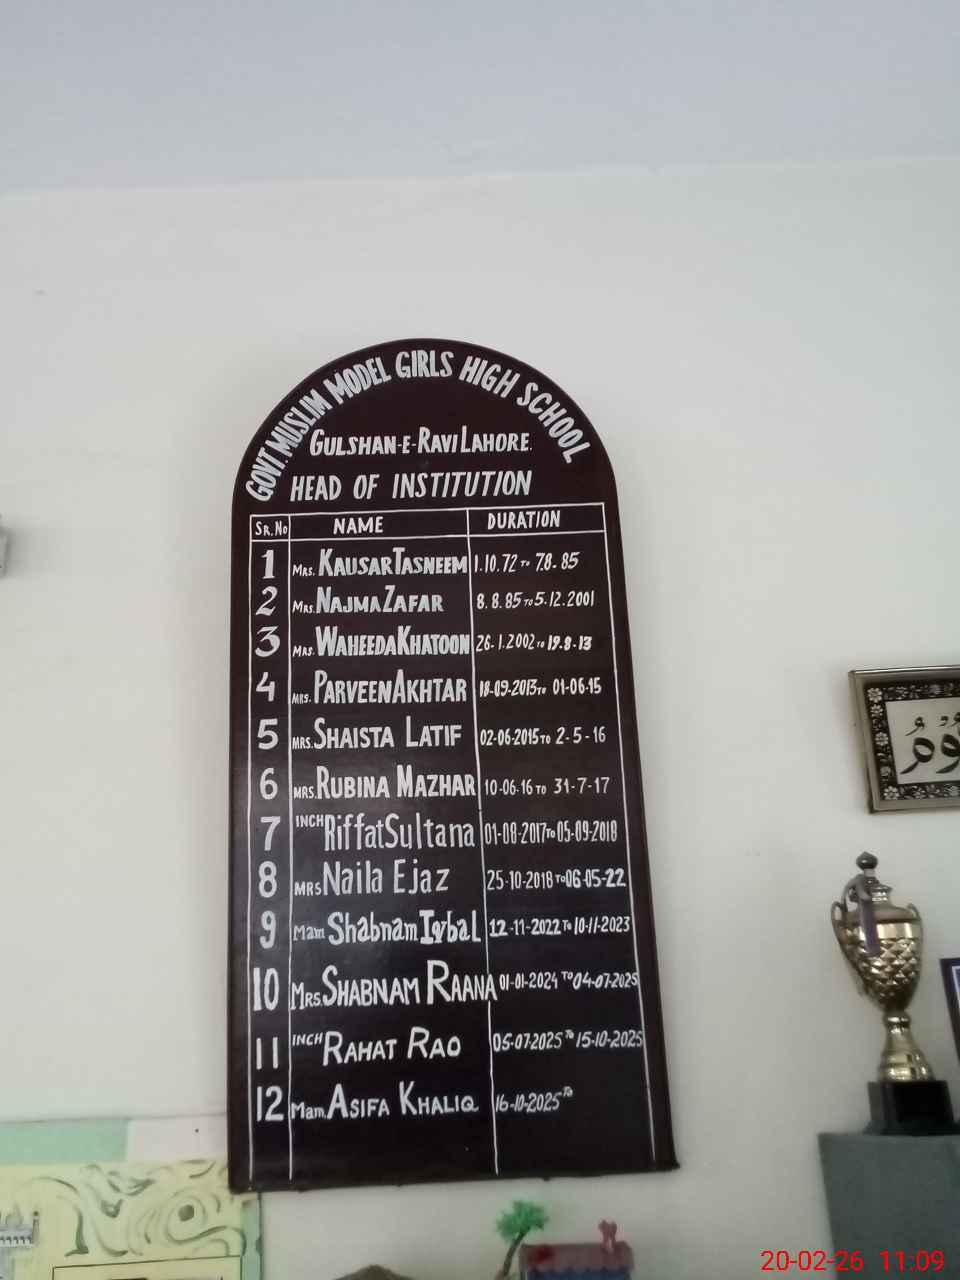 GOVT. MUSLIM MODEL GIRLS HIGH SCHOOL
GULSHAN-E-RAVI LAHORE.
HEAD OF INSTITUTION
SR.No NAME DURATION
1 MRS. KAUSAR TASNEEM 1.10.72 TO 7.8.85
2 MRS. NAJMA ZAFAR 8.8.85 TO 5.12.2001
3 MRS. WAHEEDA KHATOON 26-1.2002 TO 19-8-13
4 MRS. PARVEEN AKHTAR 18-09-2013 TO 01-06-15
5 MRS. SHAISTA LATIF 02-06-2015 TO 2-5-16
6 MRS. RUBINA MAZHAR 10-06-16 TO 31-7-17
7 INCH Riffat Sultana 01-08-2017 TO 05-09-2018
8 MRS Naila Ejaz 25-10-2018 TO 06-05-22
9 Mam Shabnam IqbaL 12-11-2022 To 10-11-2023
10 MRS. SHABNAM RAANA 01-01-2024 TO 04-07-2025
11 INCH RAHAT RAO 05-07-2025 To 15-10-2025
12 Mam. ASIFA KHALIQ 16-10-2025 To
20-02-26 11:09